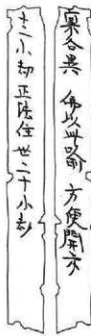 稟各異 佛以此喻 方便開示
十二小劫 正法住世二十小劫